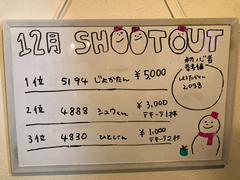 12月 SHOOTOUT
1位 5194 じょかたん ¥5,000
2位 4888 シュウくん ¥3,000
テキーラ1杯
3位 4830 ひとしくん ¥1,000
テキーラ2杯
初心者
参考値
2098